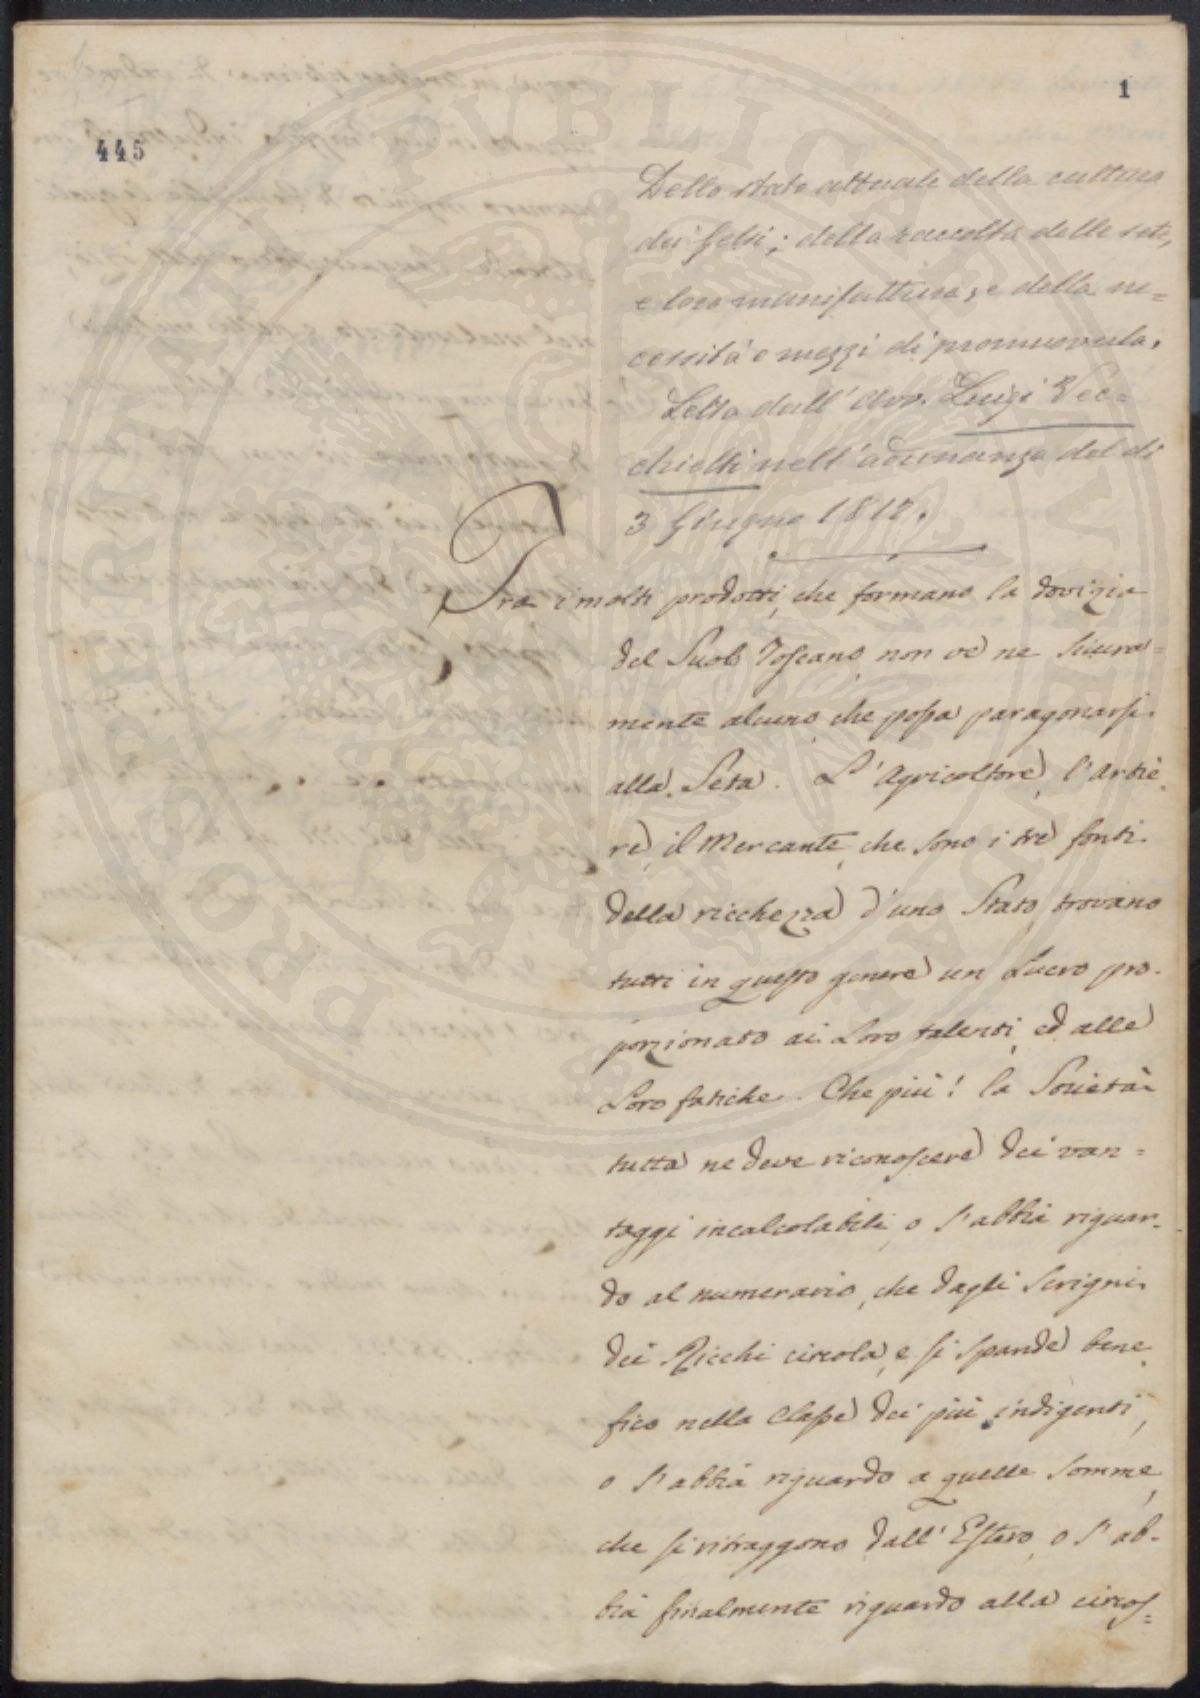 1
445
Dello stato attuale della cultura
dei Gelsi; della raccolta delle sete,
e loro manifattura, e della ne=
cessità e mezzi di promuoverla.
Letta dall'Avv. Luigi Vec=
chietti nell'adunanza del dì
3 Giugno 1812.
Tra i molti prodotti, che formano la dovizia
del Suolo Toscano, non ve ne sicura=
mente alcuno, che possa paragonarsi
alla Seta. L'Agricoltore, l'Artie
re, il Mercante, che sono i tre fonti
della ricchezza d'uno Stato, trovano
tutti in questo genere un Lucro pro-
porzionato ai Loro talenti, ed alle
Loro fatiche. Che più! la Società
tutta ne deve riconoscere dei van=
taggi incalcolabili, o s'abbia riguar-
do al numerario, che dagli Scrigni
dei Ricchi circola, e si spande bene
fico nella Classe dei più indigenti,
o s'abbia riguardo a quelle Somme,
che si ritraggono dall'Estero, o s'ab-
bia finalmente riguardo alla circos=
PUBLICAE
PROSPERITATI